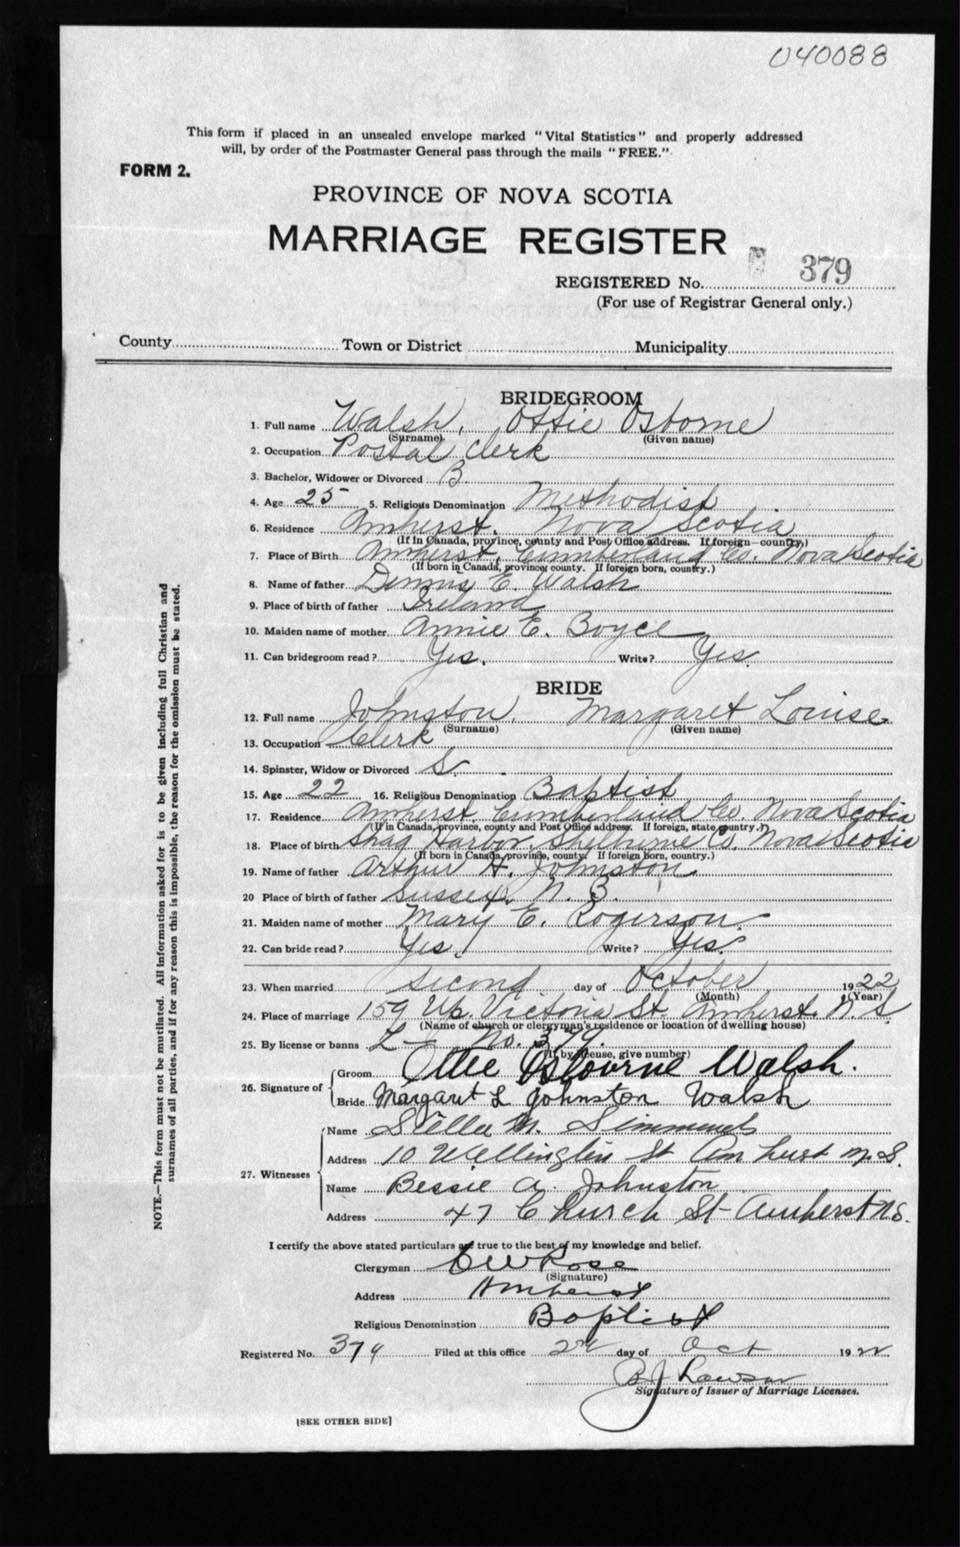 040088
This form if placed in an unsealed envelope marked "Vital Statistics" and properly addressed
will, by order of the Postmaster General pass through the mails "FREE."
FORM 2.
PROVINCE OF NOVA SCOTIA
MARRIAGE REGISTER
REGISTERED No. 379
(For use of Registrar General only.)
County Town or District Municipality
BRIDEGROOM
1. Full name Walsh, Ottie Osborne
(Surname) (Given name)
2. Occupation Postal Clerk
3. Bachelor, Widower or Divorced B.
4. Age 25 5. Religious Denomination Methodist
6. Residence Amherst, Nova Scotia
(If in Canada, province, county and Post Office address. If foreign country.)
7. Place of Birth Amherst, Cumberland Co. Nova Scotia
(If born in Canada, province county. If foreign born, country.)
8. Name of father Dennis E. Walsh
9. Place of birth of father Ireland
10. Maiden name of mother Annie E. Boyce
11. Can bridegroom read? Yes. Write? Yes.
BRIDE
12. Full name Johnston, Margaret Louise
(Surname) (Given name)
13. Occupation Clerk
14. Spinster, Widow or Divorced S.
15. Age 22 16. Religious Denomination Baptist
17. Residence Amherst, Cumberland Co. Nova Scotia
(If in Canada, province, county and Post Office address. If foreign, state country.)
18. Place of birth Shag Harbor, Shelburne Co. Nova Scotia
(If born in Canada, province, county. If foreign born, country.)
19. Name of father Arthur H. Johnston
20 Place of birth of father Sussex, N. B.
21. Maiden name of mother Mary E. Rogerson
22. Can bride read? Yes. Write? Yes.
23. When married second day of October 1922
(Month) (Year)
24. Place of marriage 159 Up. Victoria St. Amherst. N.S.
(Name of church or clergyman's residence or location of dwelling house)
25. By license or banns L - No. 379.
(If by license, give number)
26. Signature of Groom Ottie Osbourne Walsh.
Bride Margaret L Johnston Walsh
27. Witnesses Name Stella M. Simmonds
Address 10 Wellington St Amherst N.S.
Name Bessie A. Johnston
Address 47 Church St- Amherst N.S.
I certify the above stated particulars are true to the best of my knowledge and belief.
Clergyman E W Rose
(Signature)
Address Amherst
Religious Denomination Baptist
Registered No. 379 Filed at this office 2nd day of Oct 1922
Lawson
Signature of Issuer of Marriage Licenses.
[SEE OTHER SIDE]
NOTE.—This form must not be mutilated. All information asked for is to be given including full Christian and
surnames of all parties, and if for any reason this is impossible, the reason for the omission must be stated.